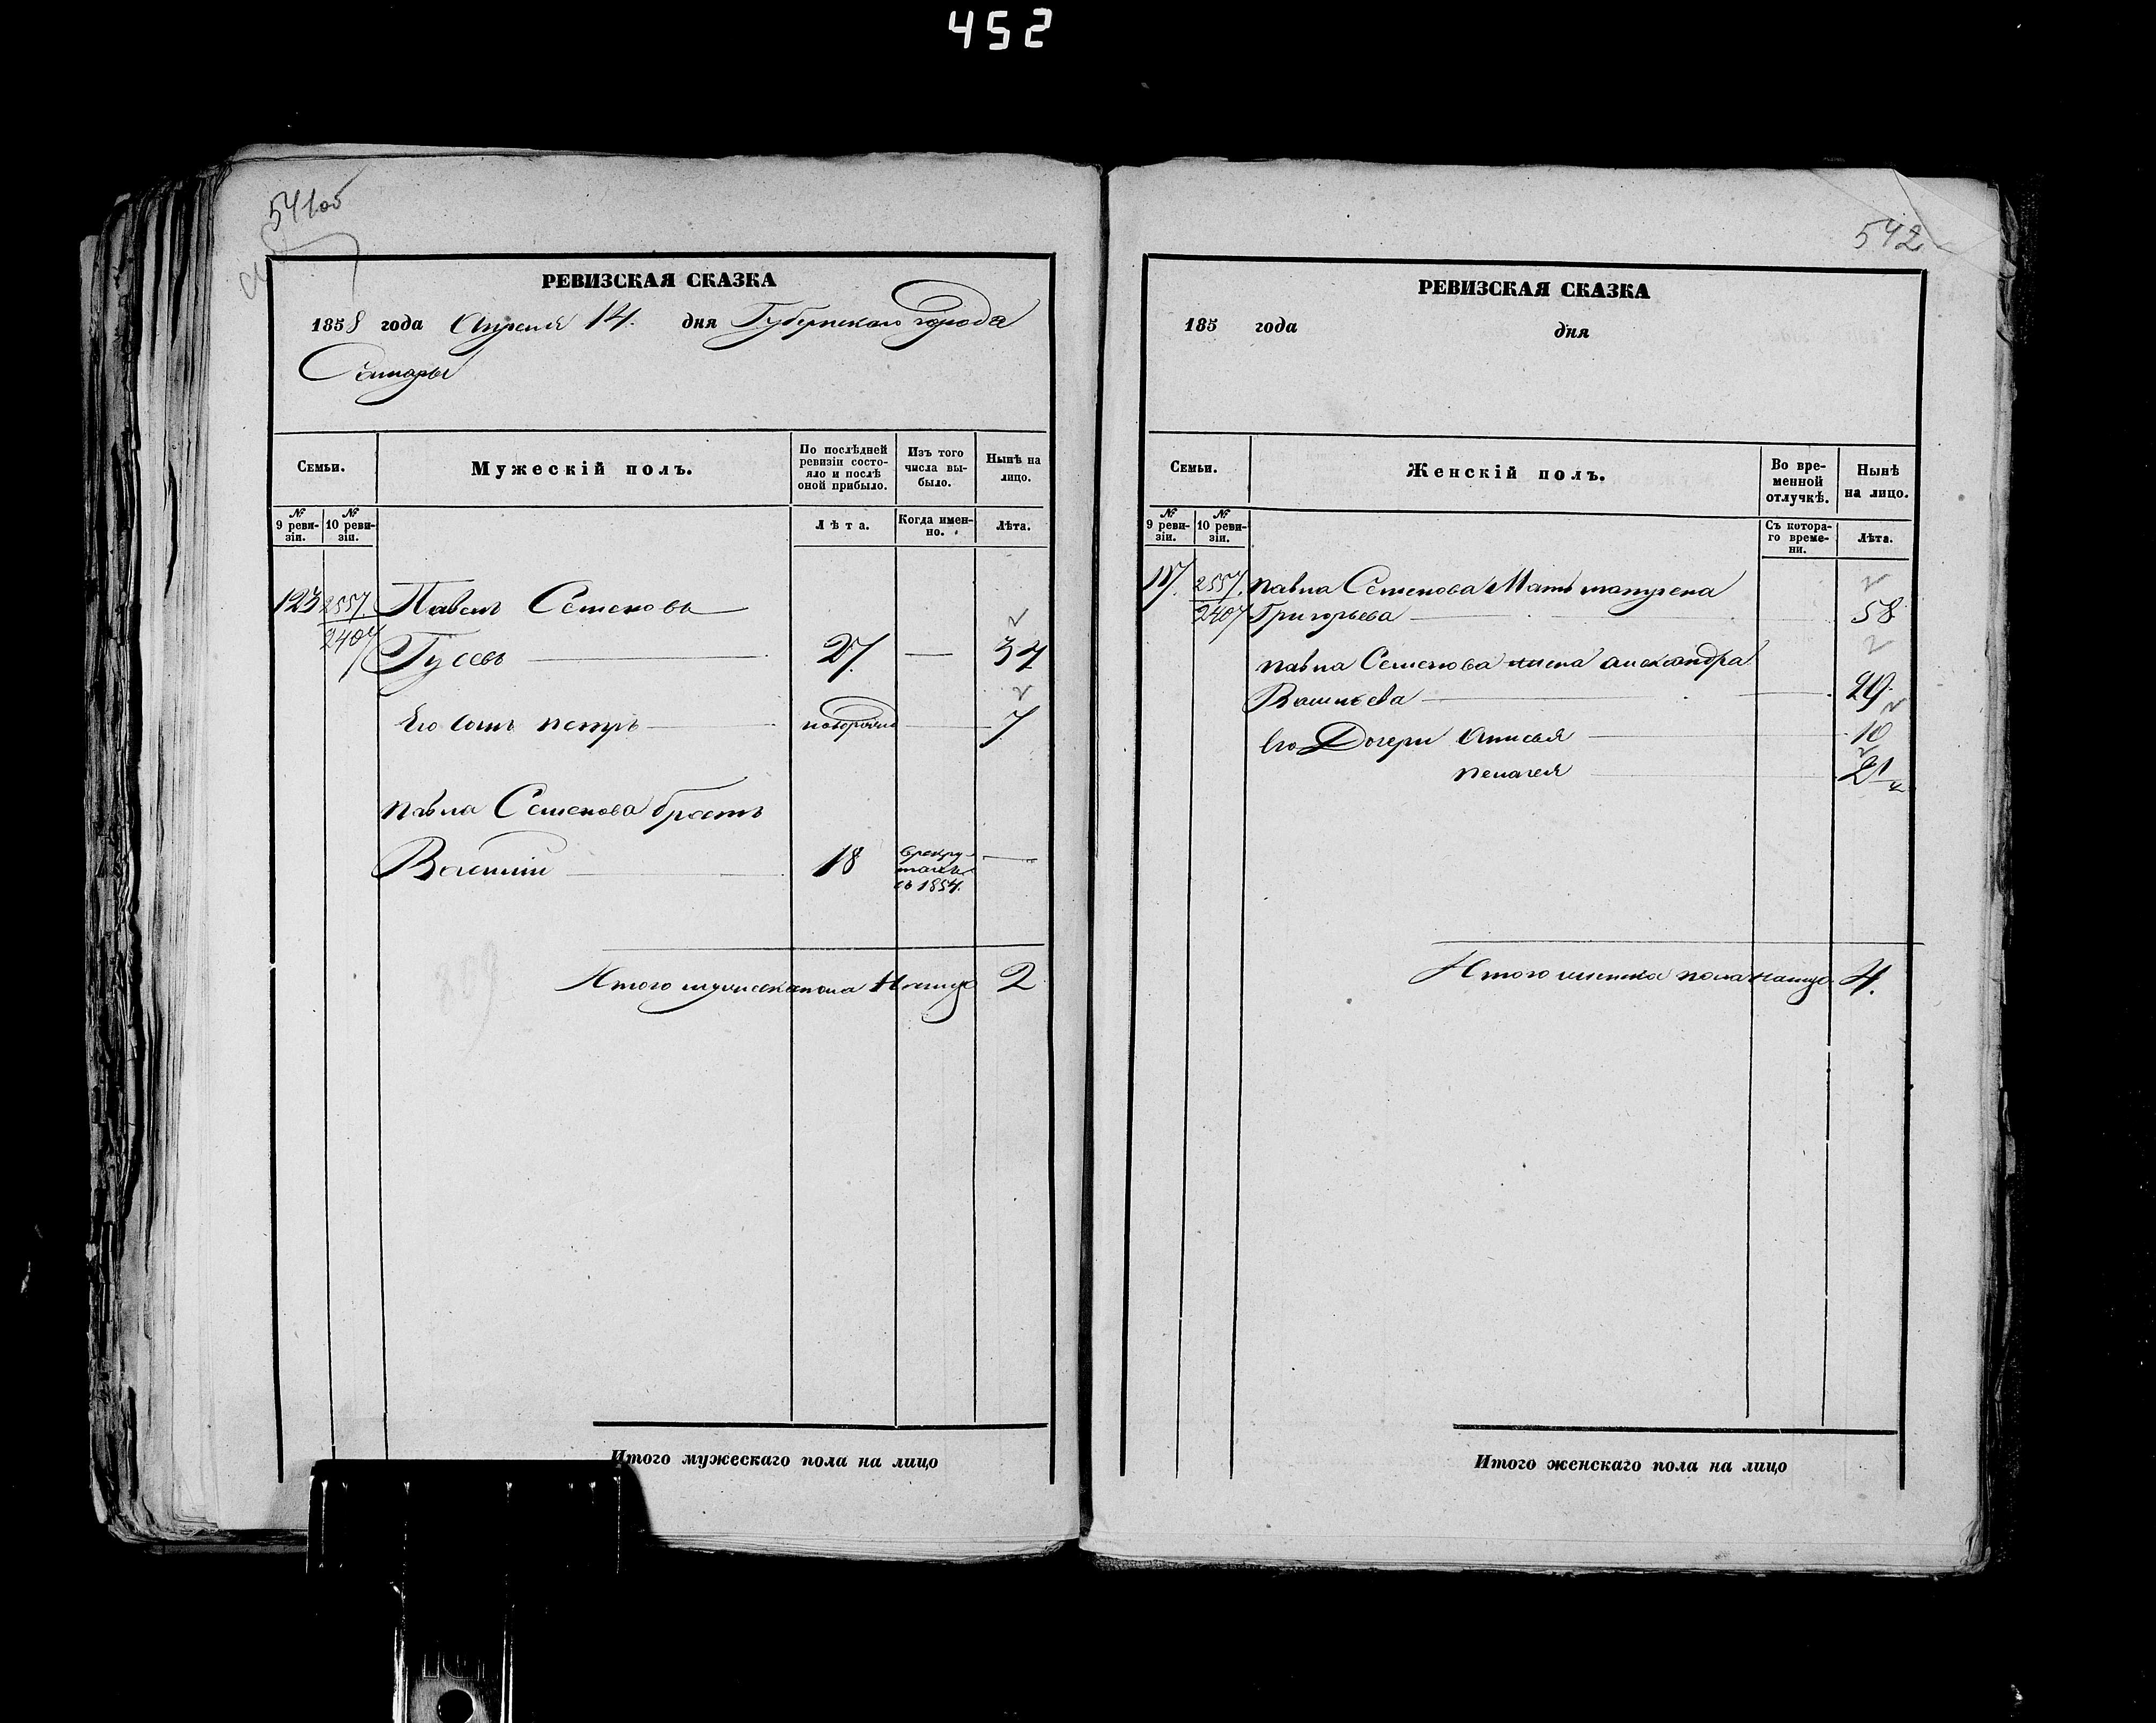 452
541об
РЕВИЗСКАЯ СКАЗКА
1858 года Апреля 14. дня Губернскаго города
Самары
Семьи.
Мужескій полъ.
По послѣдней ревизіи состояло и послѣ оной прибыло.
Изъ того числа выбыло.
Нынѣ на лицо.
№ 9 ревизіи.
№ 10 ревизіи.
Лѣта.
Когда именно.
Лѣта.
123 2557. Павелъ Семеновъ
2407 Гусевъ 27 — 34
Его сынъ петръ новорожд 7
павла Семенова братъ
Василий 18 в рекрутах съ 1854. —
Итого мужеска пола Налицо 2
Итого мужескаго пола на лицо
542
РЕВИЗСКАЯ СКАЗКА
185 года дня
Семьи.
Женскій полъ.
Во временной отлучкѣ.
Нынѣ на лицо.
№ 9 ревизіи.
№ 10 ревизіи.
Съ котораго времени.
Лѣта.
2557. павла Семенова Мать матрена
2407 Григорьева 58
павла Семенова жена александра
Васильева 29
Его Дочери Анисья 10
пелагея
Итого женска пола налицо 4.
Итого женскаго пола на лицо